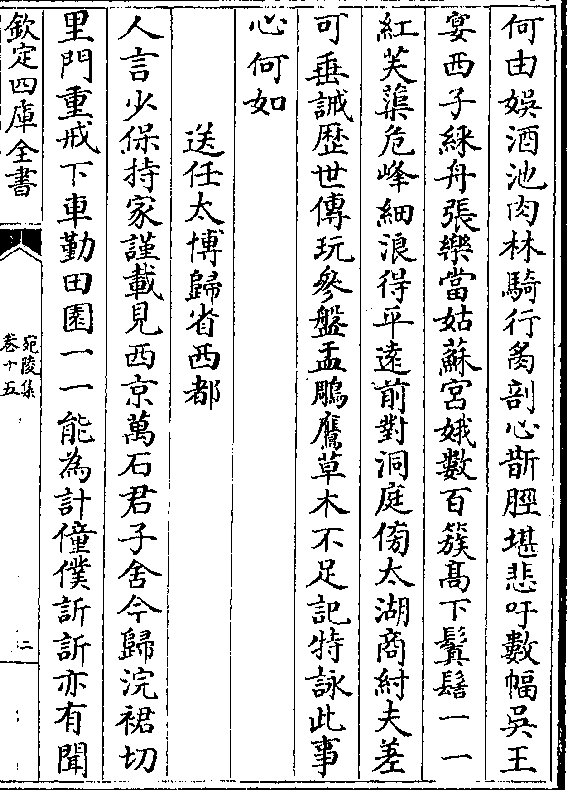 何由娯酒池肉林騎行芻剖心斮脛堪悲吁數幅吳王
宴西子綵舟張樂當姑蘇宮娥數百簇髙下鬒鬅一一
紅芙蕖危峰細浪得平逺前對洞庭傍太湖商紂夫差
可垂誡歴世傳玩參盤盂鵰鷹草木不足記特詠此事
心何如
送任太博歸省西都
人言少保持家謹載見西京萬石君子舍今歸浣裙切
里門重戒下車勤田園一一能為計僮僕訢訢亦有聞
欽定四庫全書
宛陵集
卷十五
二